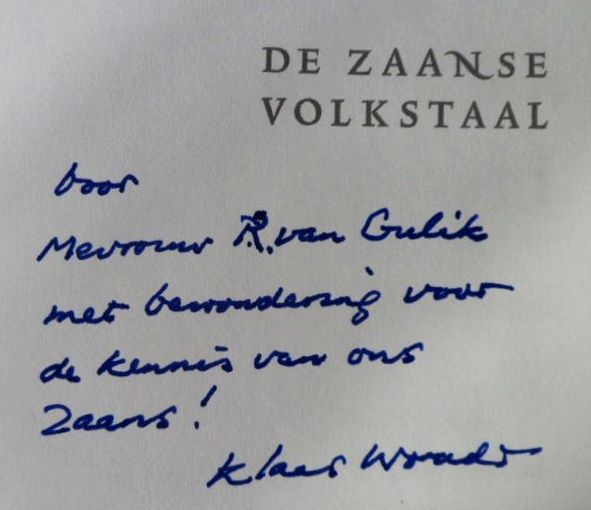 DE ZAANSE
VOLKSTAAL
voor
Mevrouw R. van Gulik
met bewondering voor
de kennis van ons
Zaans!
Klaas Woudt